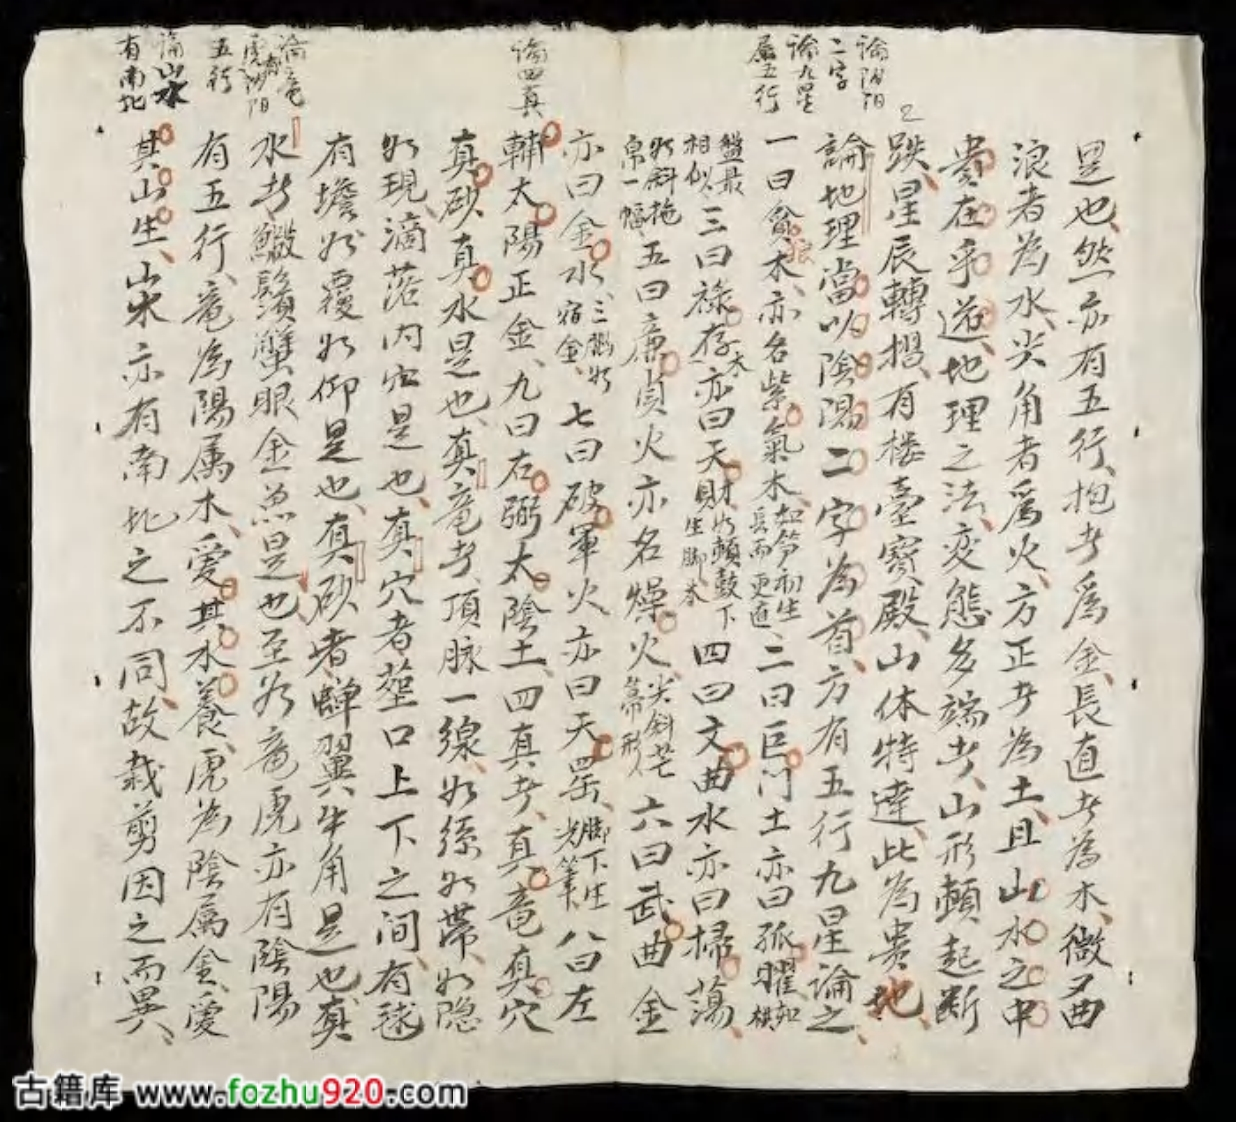 論陰陽
二字
論九星
屬五行
論四真
論竜
虎亦有陰陽
五行
論山水
有南北
是也、然亦有五行、抱者爲金、長直者為木、微夕曲
浪者為水、尖角者爲火、方正者為土、且山水之中
貴在乎道、地理之法、变態多端者、山形頓起断
跌、星辰轉摺、有楼臺寳殿、山体特達、此為貴地、
論地理當以陰陽二字為首、方有五行九星論之
一曰貪狼木、亦名紫氣木、如筍初生長而更直二曰巨门土亦曰孤曜如棋
盤最相似三曰禄存木亦曰天財如頓鼓下生脚四曰文曲水亦曰掃蕩、
如斜拖帛一幅五曰廉貞火亦名燥火、尖斜芒帚形六曰武曲金
亦曰金水、三台如宿金、七曰破軍火亦曰天罡、脚下生尖筆、八曰左
輔太陽正金、九曰右弼太陰土、四真者、真竜真穴
真砂真水是也、真竜者、頂脉一線、如絲如帶、如隐
如現、滴落内穴是也、真穴者塋口上下之间、有毬
有簷如覆如仰是也、真砂者、蝉翼牛角是也、真
水者、蝦鬚蟹眼金魚是也、至於竜虎亦有陰陽
有五行、竜為陽属木、愛其水養、虎為陰属金、愛
其山生、山水亦有南北之不同、故裁剪因之而異、
古籍库 www.fozhu920.com